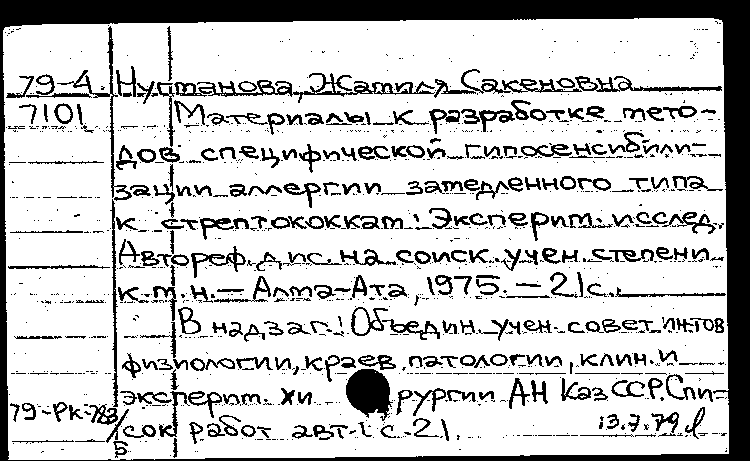 79-4. Нугманова, Жамиля Сакеновна
7101 Материалы к разработке мето-
дов специфической гипосенсибили-
зации аллергии замедленного типа
к стрептококкам: Эксперим. исслед.
Автореф. дис. на соиск. учен. степени
к.м.н. — Алма-Ата, 1975. — 21с.
В надзаг.: Объедин. учен. совет ин-тов
физиологии, краев. патологии, клин. и
эксперим. хирургии АН КазССР. Спи-
79-Рк-783/Б сок работ авт.: с. 21. 13.7.79